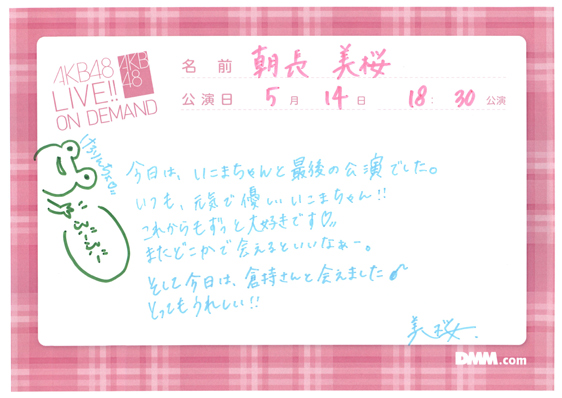 AKB48
LIVE!!
ON DEMAND
AKB
48
名前 朝長 美桜
公演日 5月 14日 18:30公演
今日は、いこまちゃんと最後の公演でした。
いつも、元気で優しいいこまちゃん!!
これからもずっと大好きです♡
またどこかで会えるといいなぁー。
そして今日は、倉持さんと会えました♪
とってもうれしい!!
ぶーぶー
美桜.
DMM.com